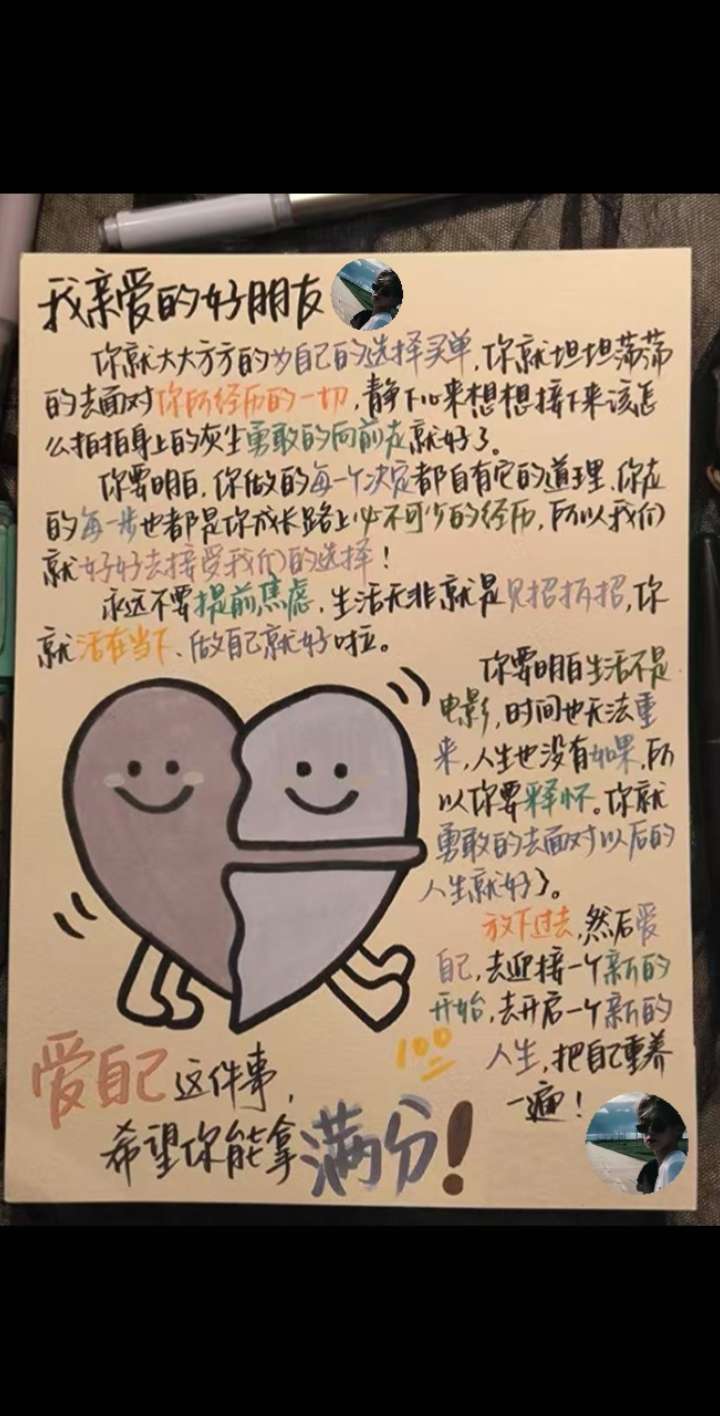 我亲爱的好朋友
你就大大方方的为自己的选择买单,你就坦坦荡荡
的去面对你所经历的一切,静下心来想想接下来该怎
么拍拍身上的灰尘勇敢的向前走就好了。
你要明白,你做的每一个决定都自有它的道理、你走
的每一步也都是你成长路上必不可少的经历,所以我们
就好好去接受我们的选择!
永远不要提前焦虑,生活无非就是见招拆招,你
就活在当下、做自己就好啦。
你要明白生活不是
电影,时间也无法重
来,人生也没有如果,所
以你要释怀。你就
勇敢的去面对以后的
人生就好了。
放下过去,然后爱
自己,去迎接一个新的
开始,去开启一个新的
人生,把自己重养
一遍!
100
爱自己这件事,
希望你能拿满分!